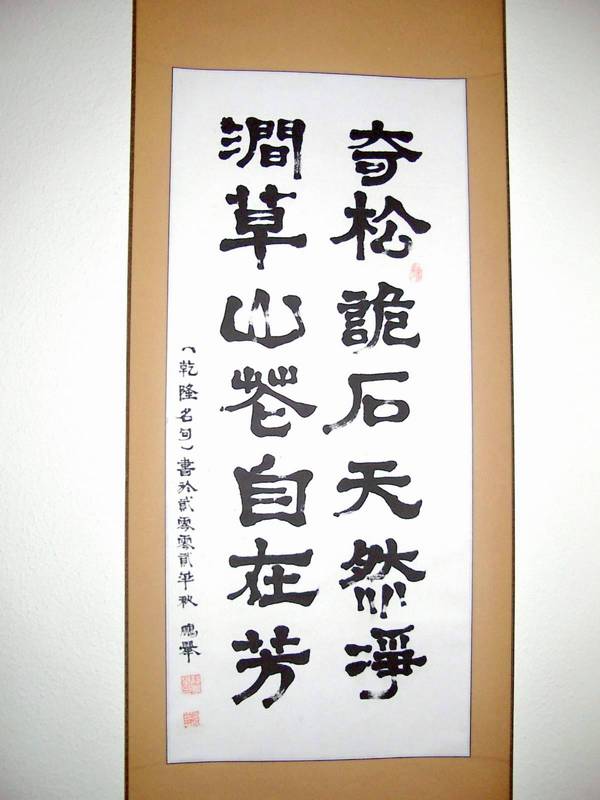 奇松詭石天然淨
澗草山花自在芳
(乾隆名句)書於貳零零貳年秋